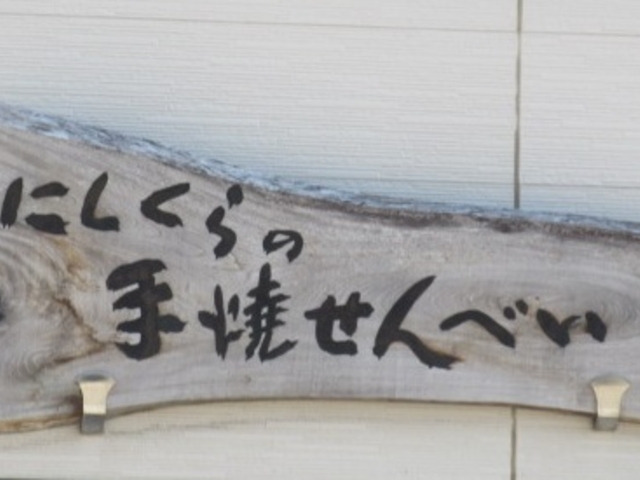 にしくらの
手焼せんべい